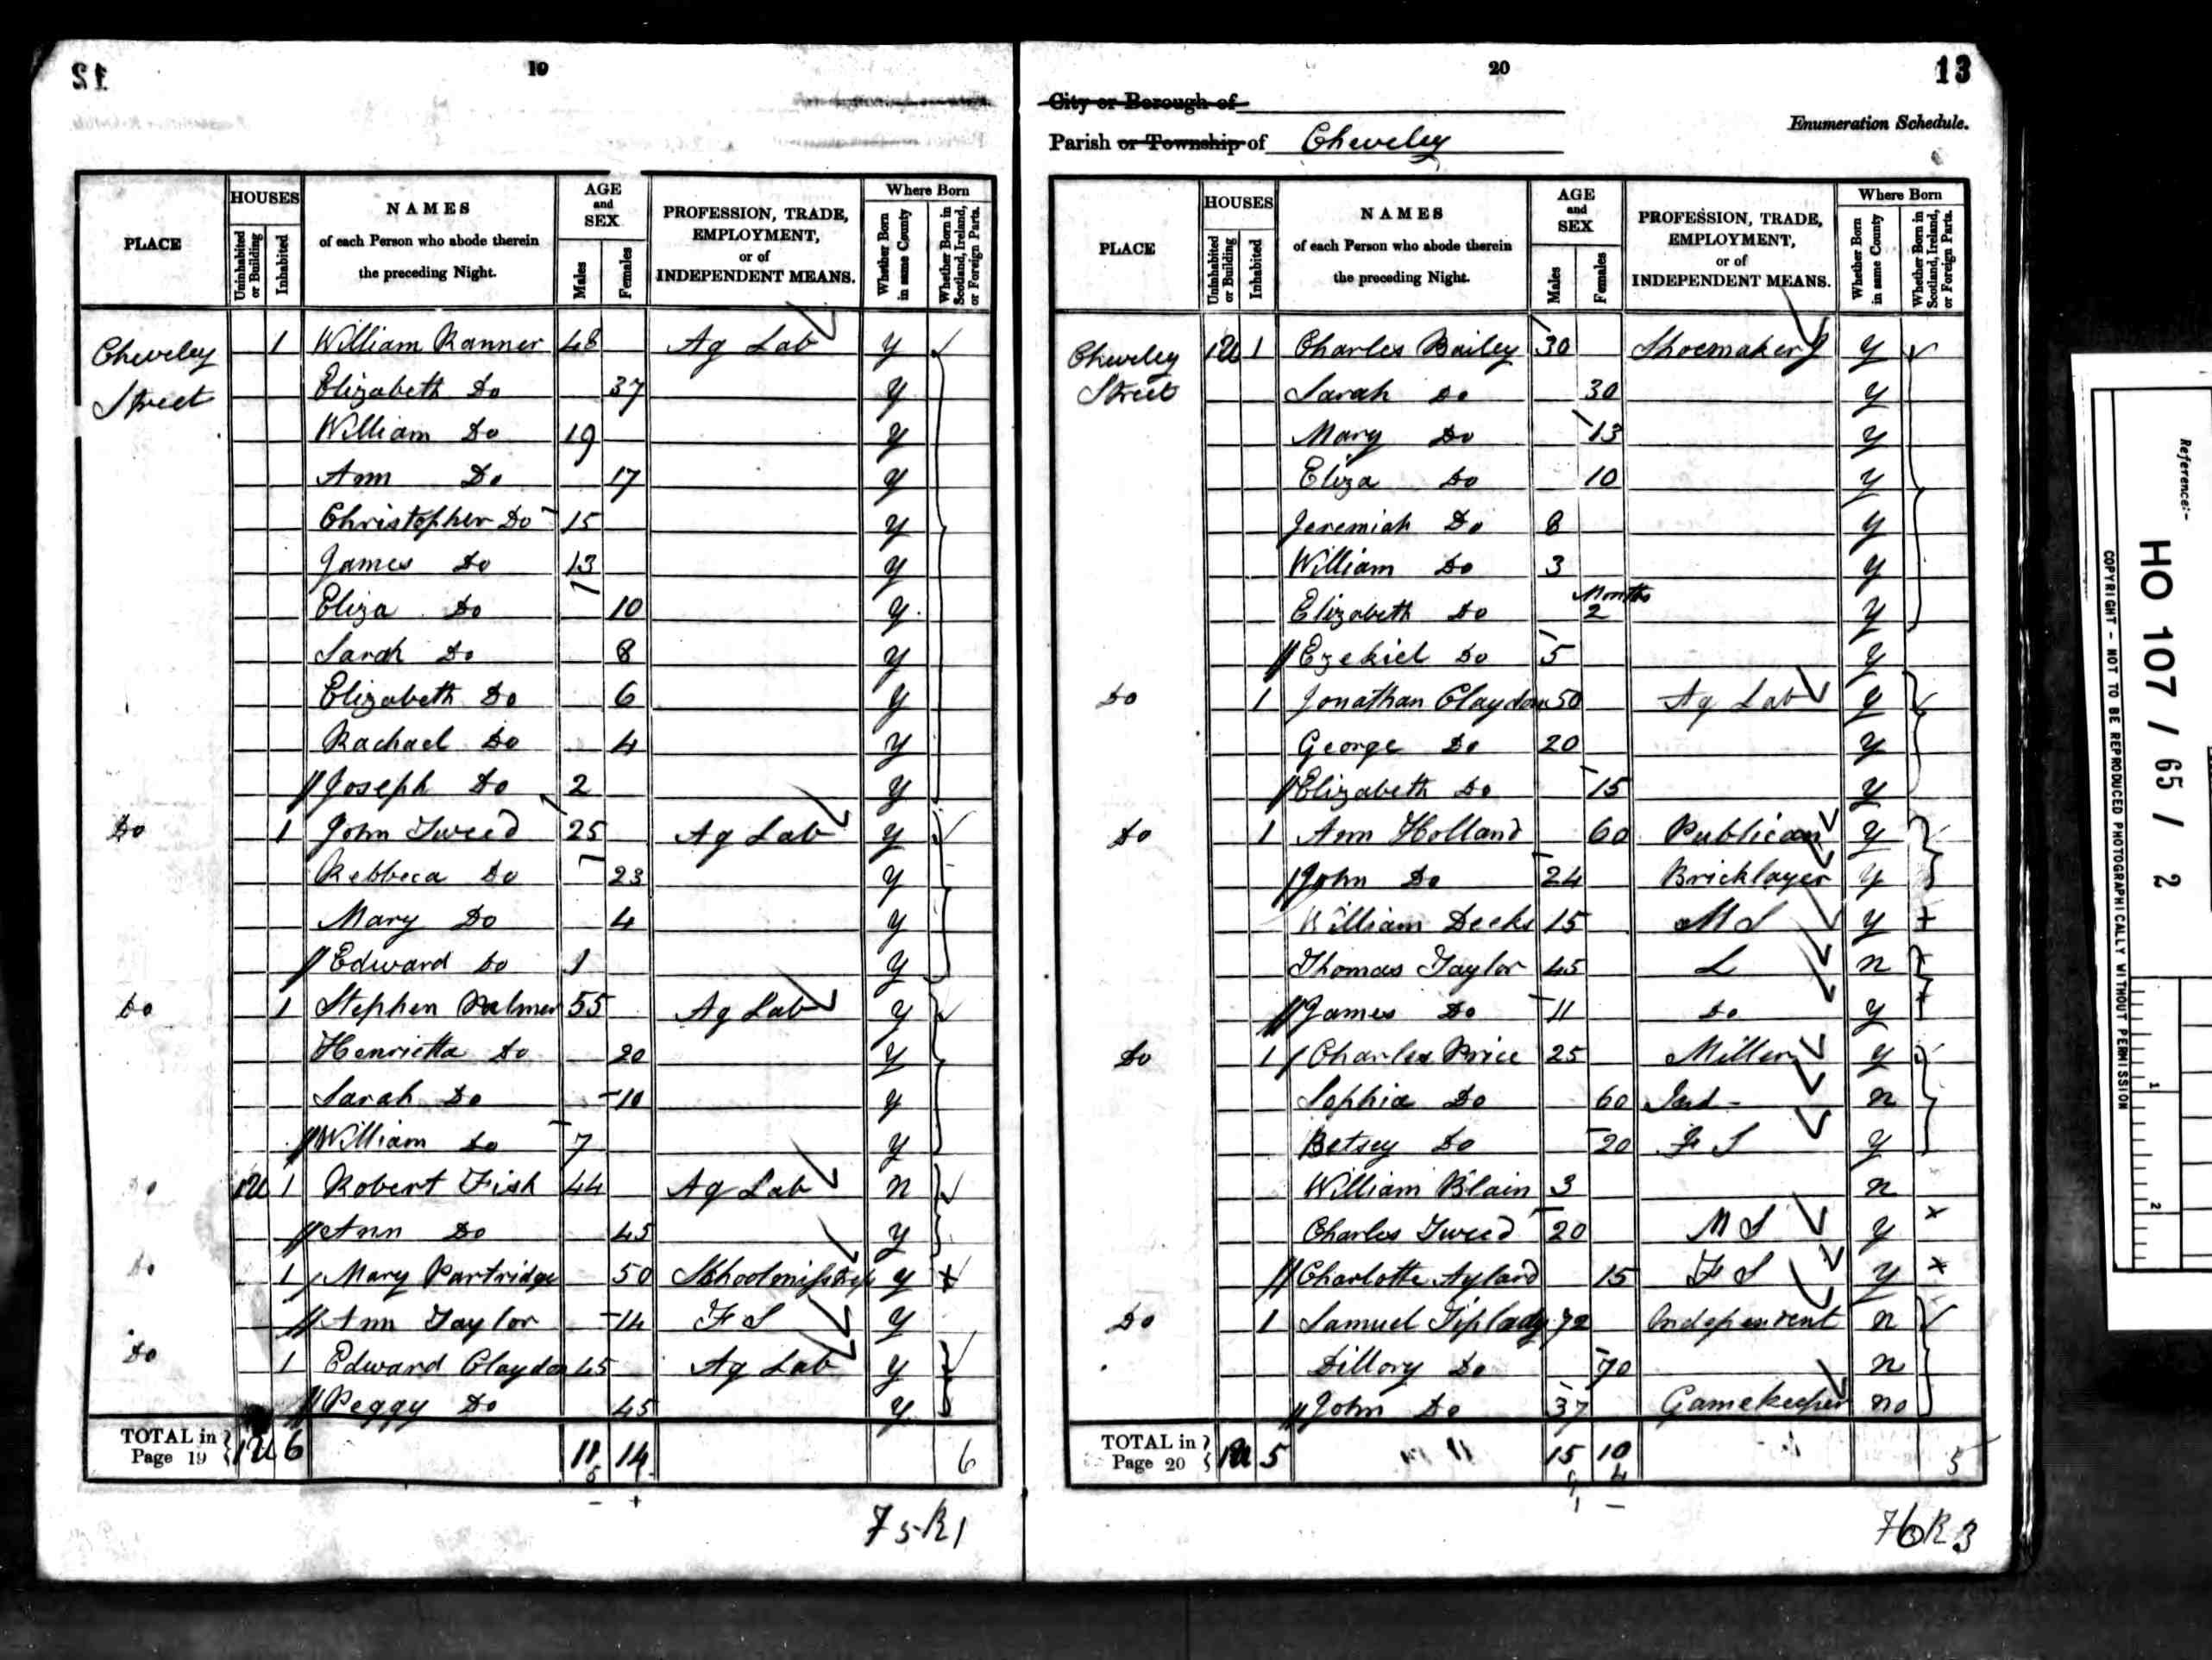 12
19
PLACE
HOUSES
Uninhabited or Building
Inhabited
NAMES
of each Person who abode therein
the preceding Night.
AGE
and
SEX
Males
Females
PROFESSION, TRADE,
EMPLOYMENT,
or of
INDEPENDENT MEANS.
Where Born
Whether Born in same County
Whether Born in Scotland, Ireland, or Foreign Parts.
Cheveley 1 William Ranner 48 Ag Lab y
Street Elizabeth Do 37 y
William Do 19 y
Ann Do 17 y
Christopher Do 15 y
James Do 13 y
Eliza Do 10 y
Sarah Do 8 y
Elizabeth Do 6 y
Rachael Do 4 y
Joseph Do 2 y
Do 1 John Tweed 25 Ag Lab y
Rebbeca Do 23 y
Mary Do 4 y
Edward Do 1 y
Do 1 Stephen Palmer 55 Ag Lab y
Henrietta Do 20 y
Sarah Do 10 y
William Do 7 y
Do 1U 1 Robert Fish 44 Ag Lab n
Ann Do 45 y
Do 1 Mary Partridge 50 Schoolmistress y
Ann Taylor 14 F S y
Do 1 Edward Claydon 45 Ag Lab y
Peggy Do 45 y
TOTAL in
Page 19 1U 6 11 14 6
5
75 R1
20
13
City or Borough of
Enumeration Schedule.
Parish or Township of Cheveley
PLACE
HOUSES
Uninhabited or Building
Inhabited
NAMES
of each Person who abode therein
the preceding Night.
AGE
and
SEX
Males
Females
PROFESSION, TRADE,
EMPLOYMENT,
or of
INDEPENDENT MEANS.
Where Born
Whether Born in same County
Whether Born in Scotland, Ireland, or Foreign Parts.
Cheveley 1U 1 Charles Bailey 30 Shoemaker J y
Street Sarah Do 30 y
Mary Do 13 y
Eliza Do 10 y
Jeremiah Do 8 y
William Do 3 y
Months
Elizabeth Do 2 y
Ezekiel Do 5 y
Do 1 Jonathan Claydon 50 Ag Lab y
George Do 20 y
Elizabeth Do 15 y
Do 1 Ann Holland 60 Publican y
John Do 24 Bricklayer y
William Deeks 15 M S y
Thomas Taylor 45 L n
James Do 11 Do y
Do 1 Charles Price 25 Miller y
Sophia Do 60 Ind- n
Betsey Do 20 F S y
William Blain 3 n
Charles Tweed 20 M S y
Charlotte Aylard 15 F S y
Do 1 Samuel Tiplady 72 Independent n
Dillory Do 70 n
John Do 37 Gamekeeper no
TOTAL in
Page 20 1U 5 15 10 5
4
76 R3
Reference:-
HO 107 / 65 / 2
COPYRIGHT - NOT TO BE REPRODUCED PHOTOGRAPHICALLY WITHOUT PERMISSION
1
2